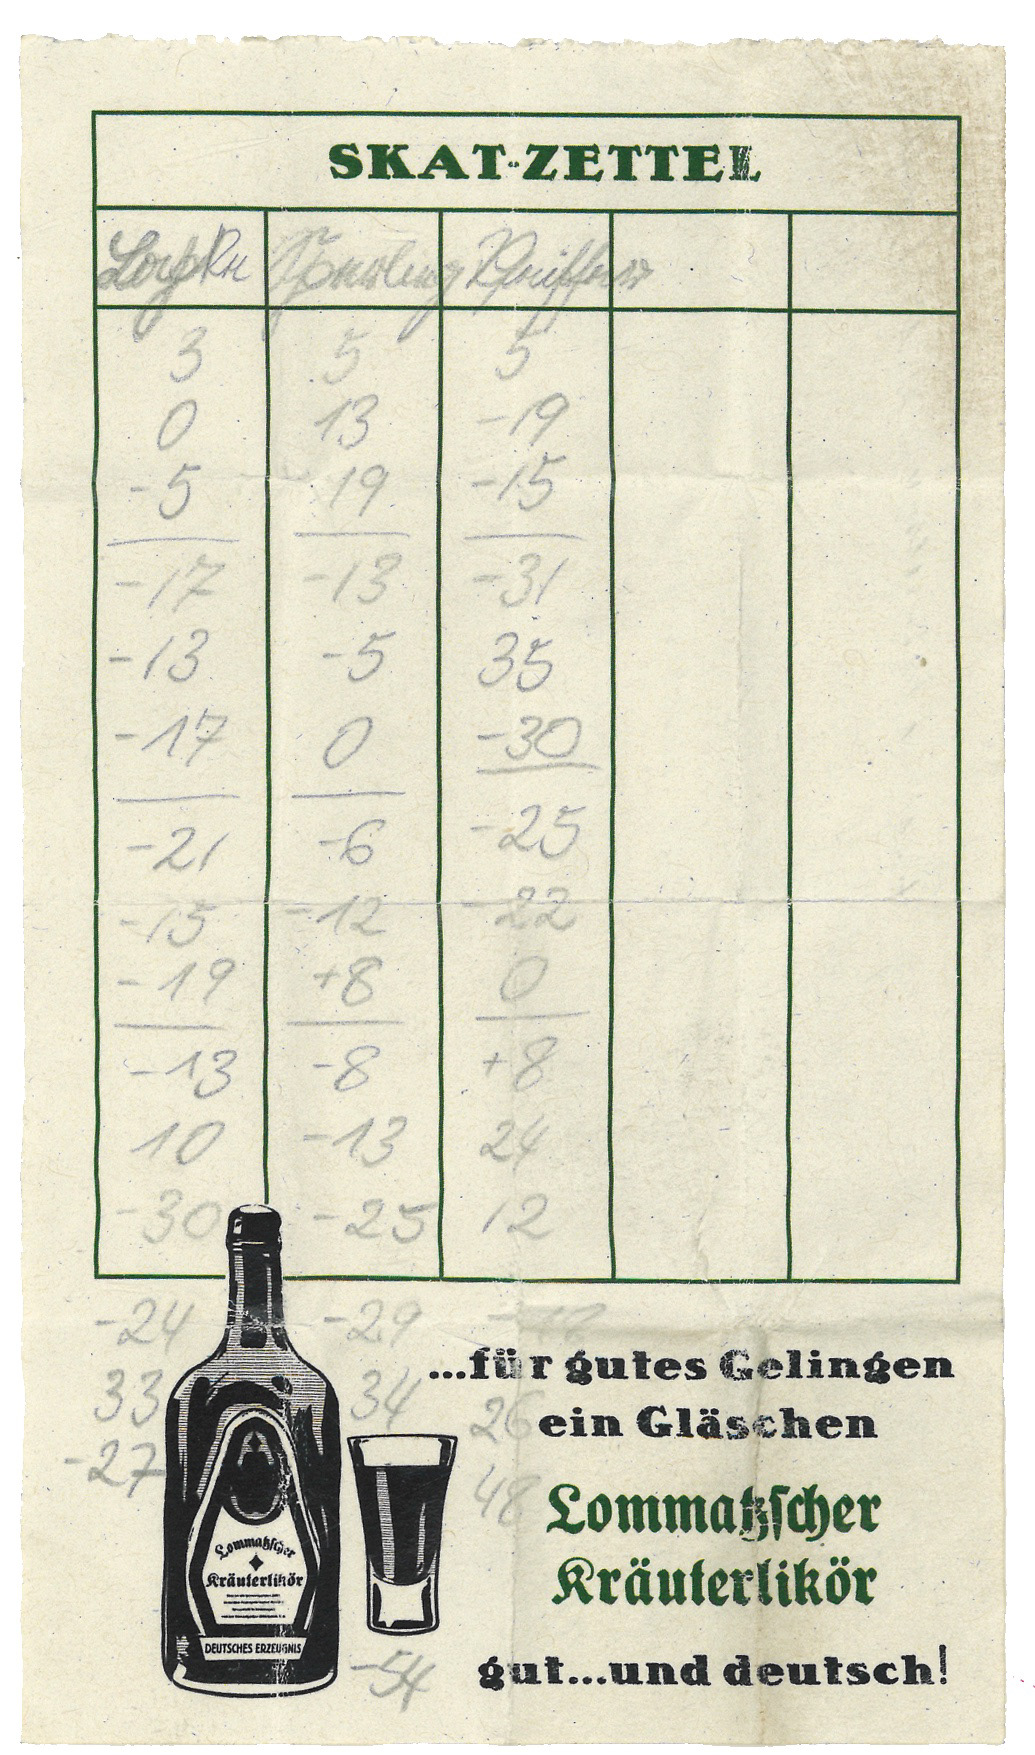 SKAT-ZETTEL
3 5 5
0 13 -19
-5 19 -15
-17 -13 -31
-13 -5 35
-17 0 -30
-21 -6 -25
-15 -12 -22
-19 +8 0
-13 -8 +8
10 -13 24
-30 -25 12
-24 -29
...für gutes Gelingen
33 34 26
ein Gläschen
-27 48
Lommatzscher
Kräuterlikör
Lommatzscher
Kräuterlikör
DEUTSCHES ERZEUGNIS
-54
gut...und deutsch!